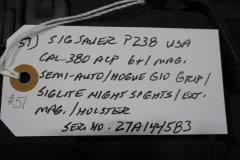 51) SIG SAUER P238 USA
CAL .380 ACP 6+1 MAG.
SEMI-AUTO/HOGUE G10 GRIP/
SIGLITE NIGHT SIGHTS/EXT.
MAG./HOLSTER
SER NO. 27A144583
#51